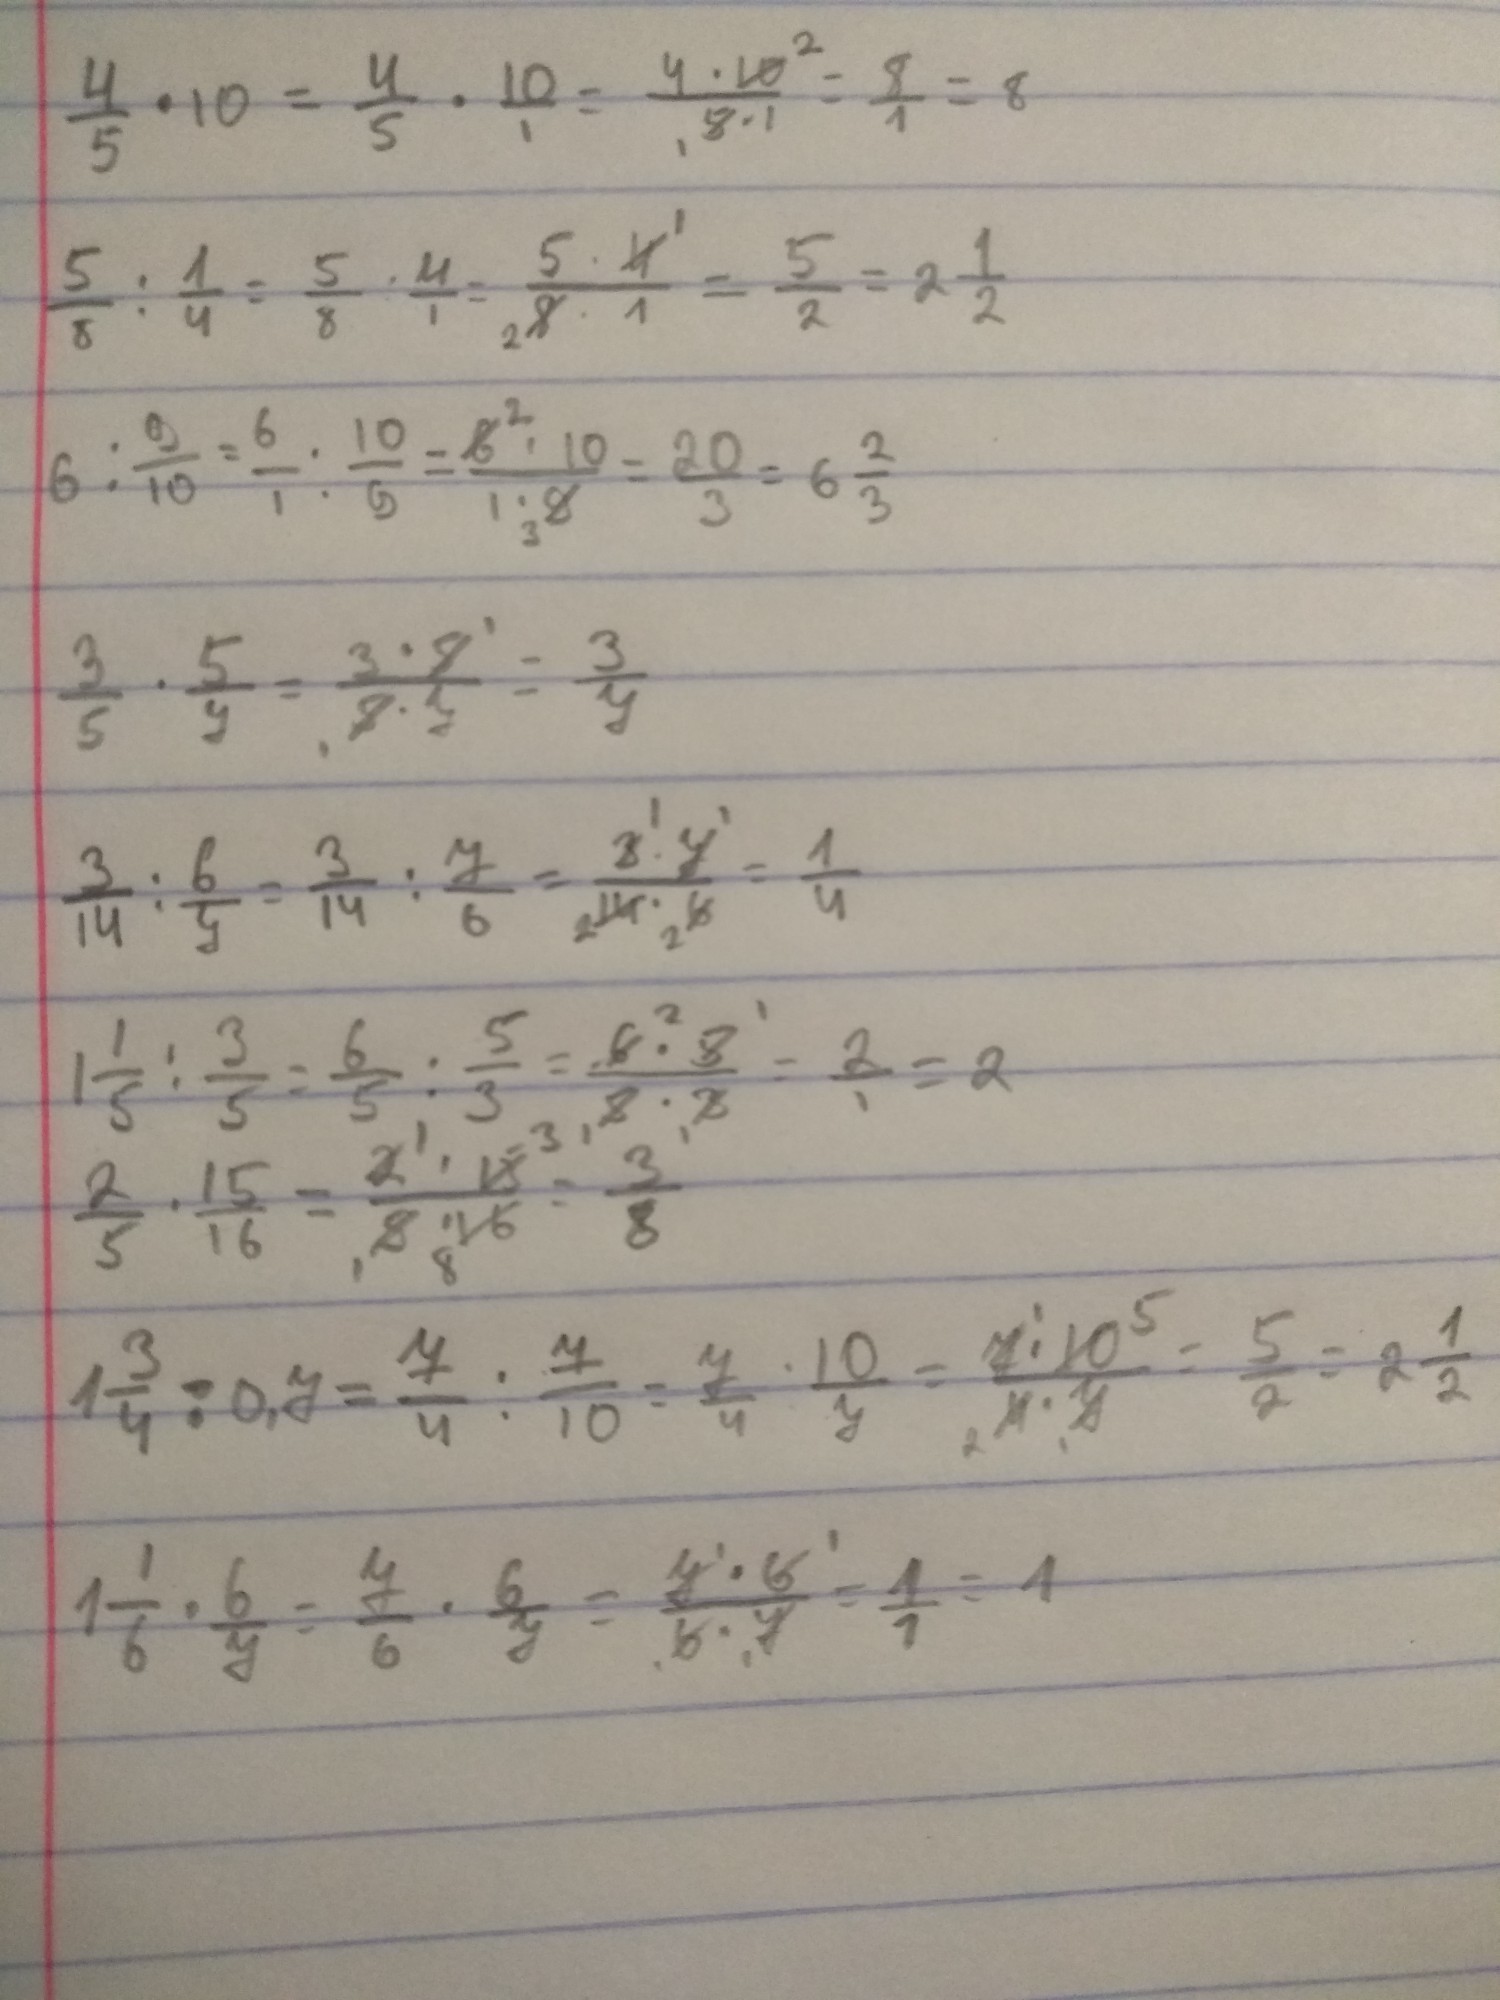 4/5 · 10 = 4/5 · 10/1 = 4·10²/₁5·1 = 8/1 = 8
5/8 : 1/4 = 5/8 · 4/1 = 5·4¹/₂8·1 = 5/2 = 2 1/2
6 : 9/10 = 6/1 · 10/9 = 6²·10/1·₃9 = 20/3 = 6 2/3
3/5 · 5/7 = 3·5¹/₁5·7 = 3/7
3/14 : 6/7 = 3/14 : 7/6 = 3¹·7¹/₂14·₂6 = 1/4
1 1/5 : 3/5 = 6/5 : 5/3 = 6²·5¹/₁5·₁3 = 2/1 = 2
2/5 · 15/16 = 2¹·15³/₁5·₈16 = 3/8
1 3/4 : 0,7 = 7/4 : 7/10 = 7/4 · 10/7 = 7¹·10⁵/₂4·₁7 = 5/2 = 2 1/2
1 1/6 · 6/7 = 7/6 · 6/7 = 7¹·6¹/₁6·₁7 = 1/1 = 1